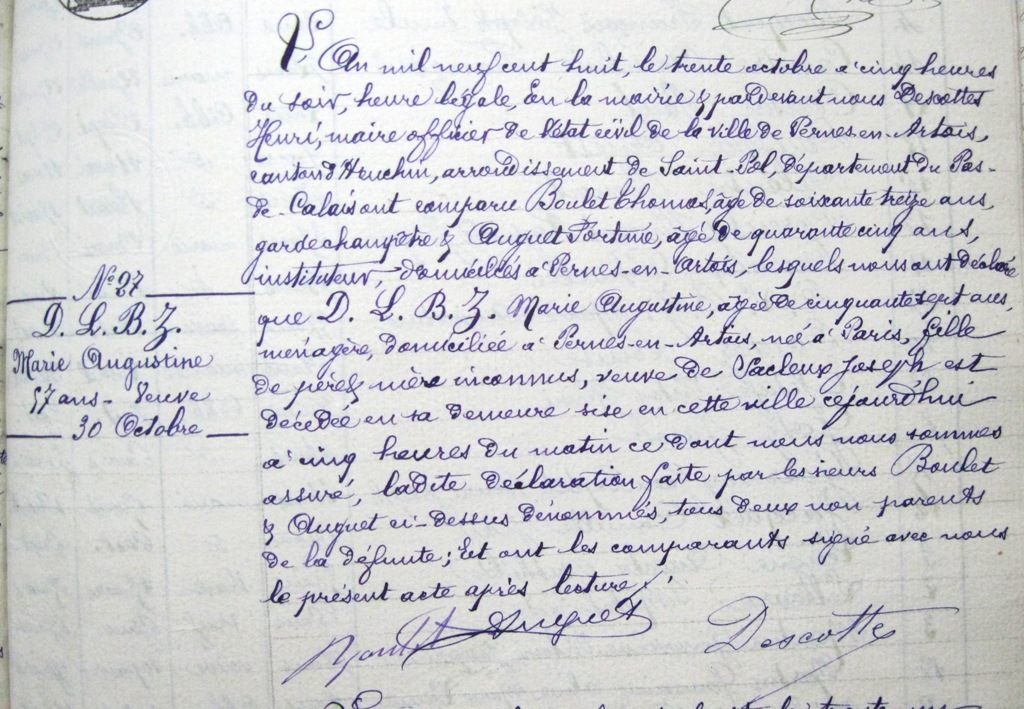 L'An mil neuf cent huit, le trente octobre à cinq heures
du soir, heure légale, En la mairie & pardevant nous Descottes
Henri, maire officier de l'état civil de la ville de Pernes-en-Artois,
canton d'Heuchin, arrondissement de Saint-Pol, département du Pas-
de-Calais ont comparu Boulet Thomas, âgé de soixante treize ans,
garde champêtre & Auguet Fortuné, âgé de quarante cinq ans,
instituteur, domiciliés à Pernes-en-Artois, lesquels nous ont déclaré
que D. L. B. Z. Marie Augustine, âgée de cinquante sept ans,
ménagère, domiciliée à Pernes-en-Artois, née à Paris, fille
de père & mère inconnus, veuve de Sacleux Joseph est
décédée en sa demeure sise en cette ville cejourd'hui
à cinq heures du matin ce dont nous nous sommes
assuré, ladite déclaration faite par les sieurs Boulet
& Auguet ci-dessus dénommés, tous deux non parents
de la défunte; Et ont les comparants signé avec nous
le présent acte après lecture.
Auguet Descottes
N° 27
D. L. B. Z.
Marie Augustine
57 ans - Veuve
30 Octobre